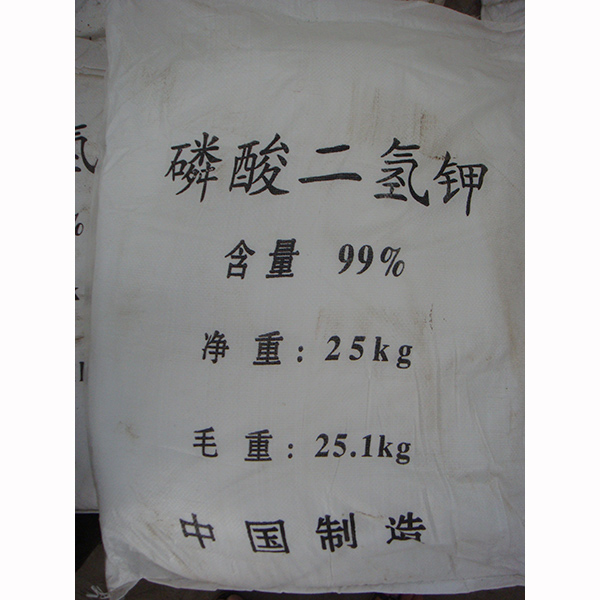 磷酸二氢钾
含量 99%
净重:25kg
毛重:25.1kg
中国制造